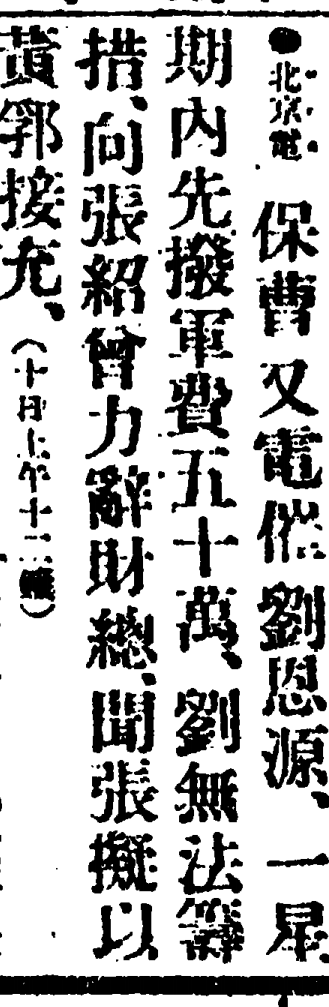 ●北京電　保曹又電催劉恩源、一星
期內先撥軍費五十萬、劉無法籌
措、向張紹曾力辭財總、聞張擬以
黃郛接充、（十日上午十二鐘）